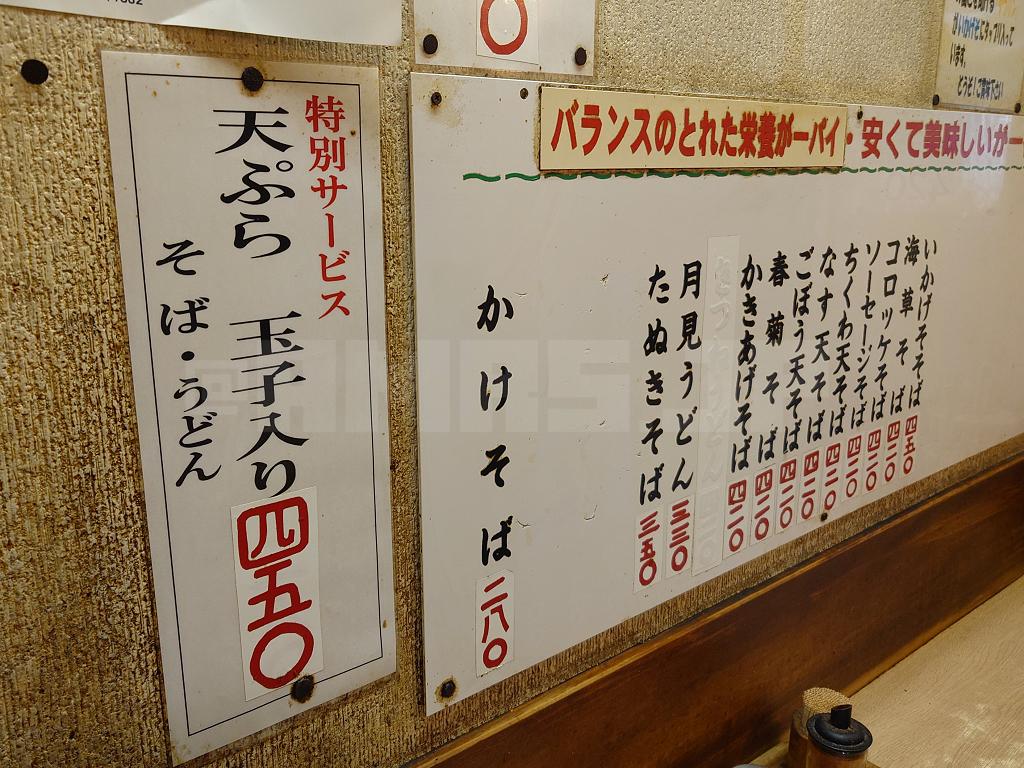 特別サービス
天ぷら 玉子入り 四五〇
そば・うどん
バランスのとれた栄養が一パイ・安くて美味しいが一
いかげそそば 四五〇
海草そば 四二〇
コロッケそば 四二〇
ソーセージそば 四二〇
ちくわ天そば 四二〇
なす天そば 四二〇
ごぼう天そば 四二〇
春菊そば 四二〇
かきあげそば 四二〇
月見うどん 三三〇
たぬきそば 三五〇
かけそば 二八〇
どうぞご賞味下さい